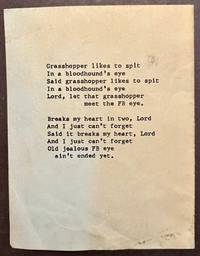 Grasshopper likes to spit
In a bloodhound's eye
Said grasshopper likes to spit
In a bloodhound's eye
Lord, let that grasshopper
meet the FB eye.
Breaks my heart in two, Lord
And I just can't forget
Said it breaks my heart, Lord
And I just can't forget
Old jealous FB eye
ain't ended yet.